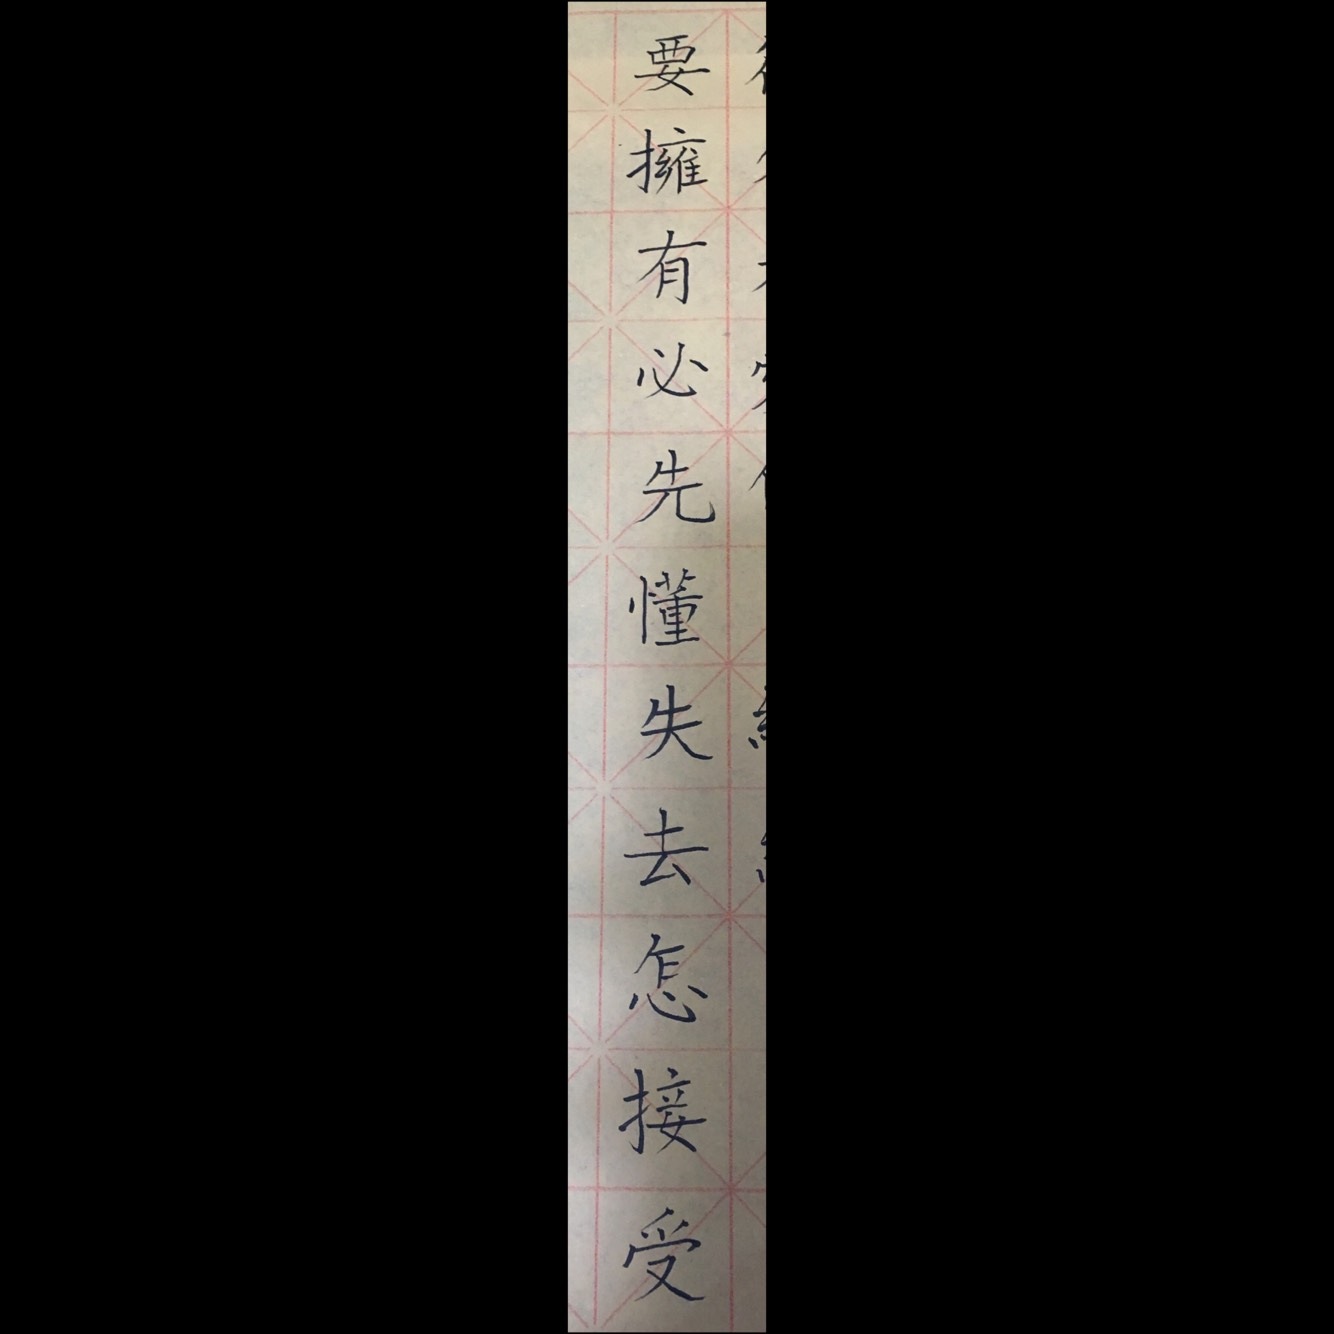 要擁有必先懂失去怎接受